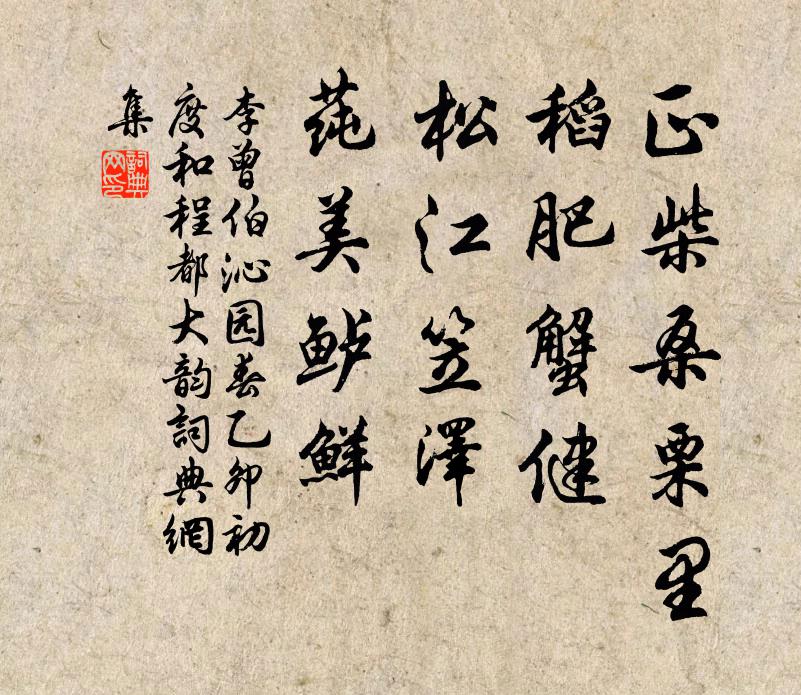 正柴桑栗里
稻肥蟹健
松江笠澤
莼美鲈鲜
李曾伯沁园春乙卯初
度和程都大韵詞典網
集
詞典
网印